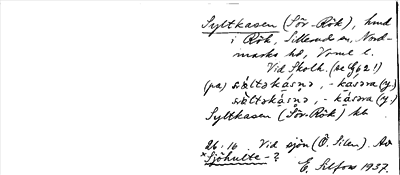 Syltkasen (Sör-Rök), hmd
i Rök, Sillerud sn, Nord-
marks hd, Vrml l.
Vid Skolh.
(pa) sæ̀ltəkàsnə, -kàsəra (y.)
sæ̀ltəkásnə, -kásera (y.)
Syltkasen (Sör-Rök) kb
26.16. Vid sjön (Ö. Silen). Av
*Sjöhulte-?
E. Silfors 1937.